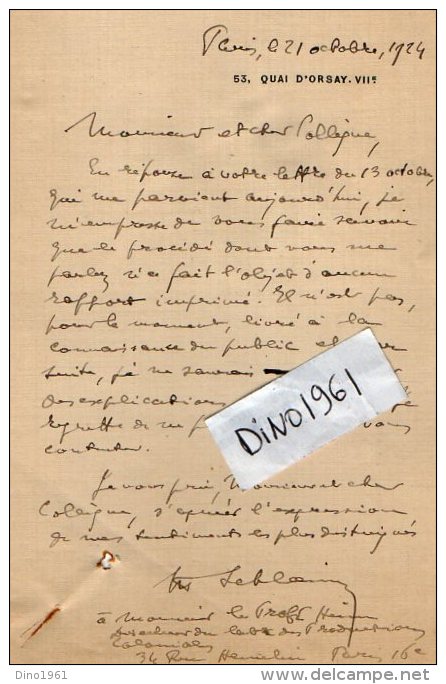 Paris, le 21 octobre, 1924
53, QUAI D'ORSAY. VIIe
Monsieur et cher Collègue,
En réponse à votre lettre du 13 octobre,
qui me parvient aujourd'hui, je
m'empresse de vous faire savoir
que le procédé dont vous me
parlez n'a fait l'objet d'aucun
rapport imprimé. Il n'est pas,
pour le moment, livré à la
connaissance du public et
suite, je ne saurais
des explications
regrette de ne vous
contenter.
DiNO1961
Je vous prie, Monsieur et cher
Collègue, d'agréer l'expression
de mes sentiments les plus distingués
à Monsieur le Profr Heim
Directeur du labre des Productions
Coloniales
34 Rue Hamelin Paris 16e
Dino1961
delcampe.net